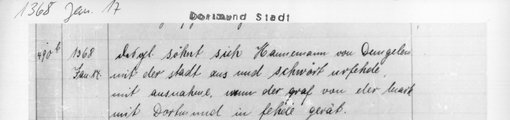 1368 Jan. 17
Dortmund Stadt
490b 1368 Desgl. söhnt sich Hannemann von Dungelen
Jan. 17. mit der stadt aus und schwört urfehde,
mit ausnahme, wenn der graf von der mark
mit Dortmund in fehde gerät.